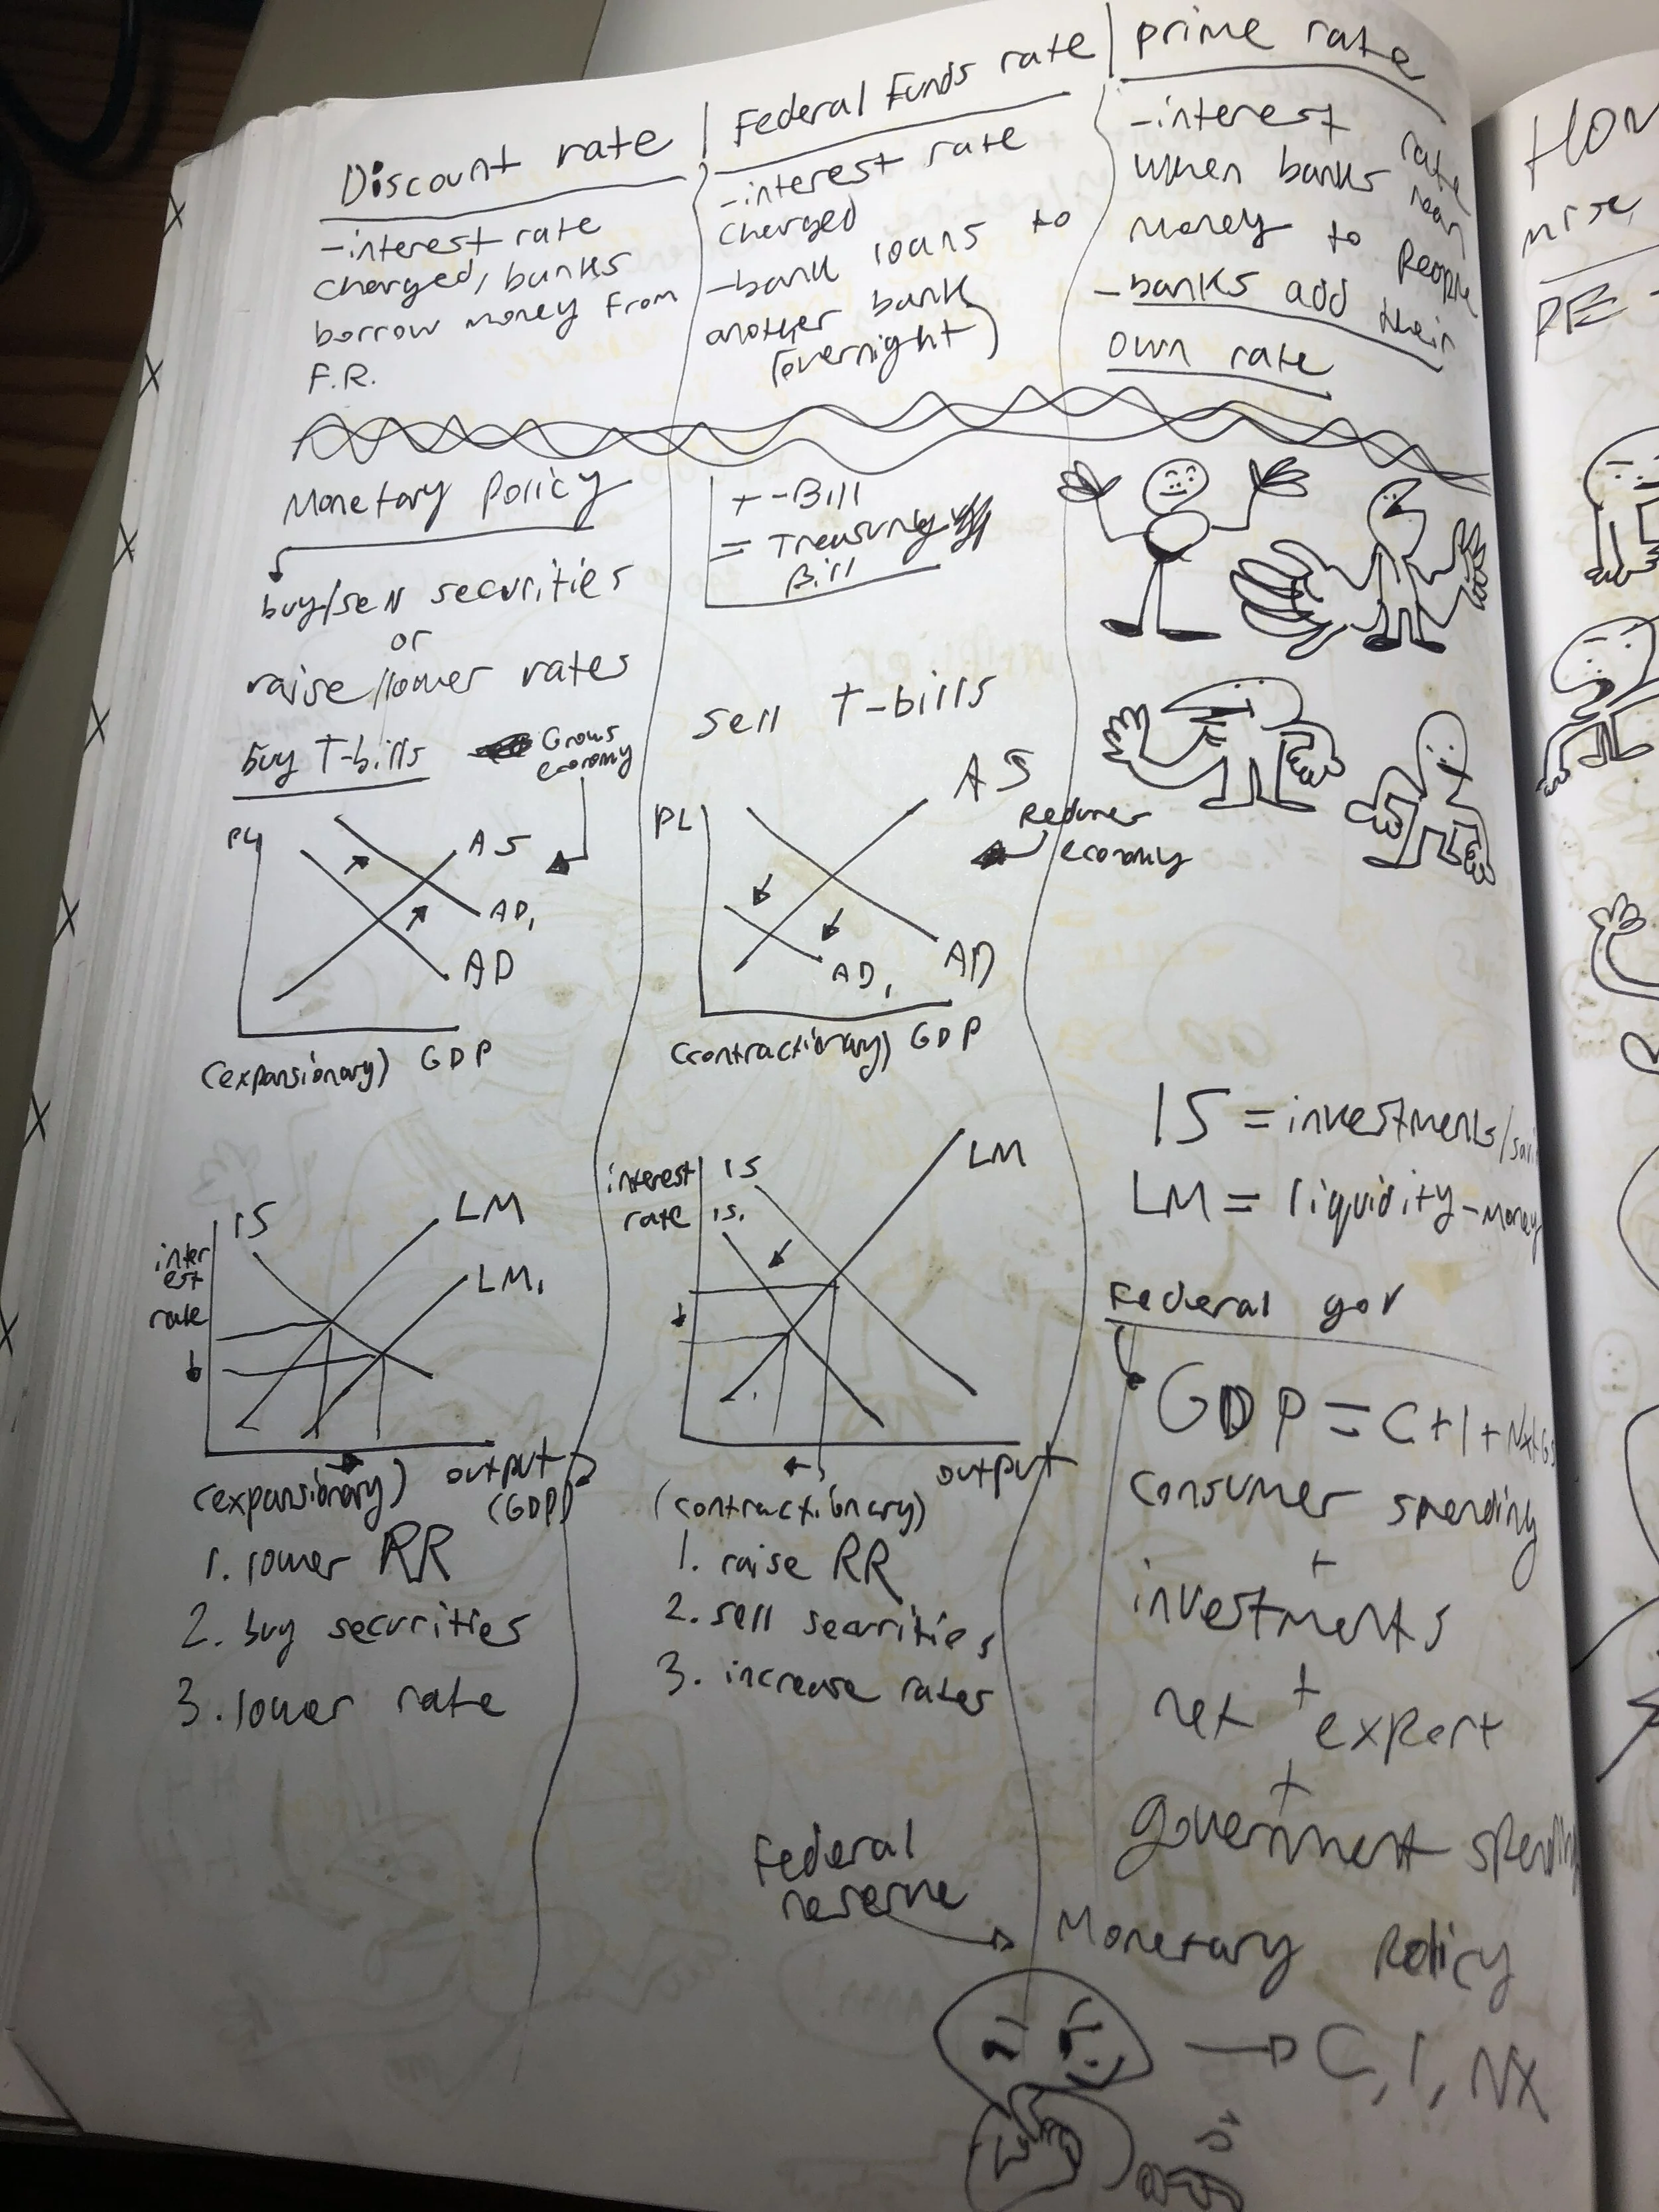 Discount rate
-interest rate
charged, banks
borrow money from
F.R.
Federal Funds rate
-interest rate
charged
-bank loans to
another bank
(overnight)
prime rate
-interest rate
when banks loan
money to people
-banks add their
own rate
Monetary Policy
buy/sell securities
or
raise/lower rates
buy T-bills
Grows
economy
PL
AS
AD₁
AD
(expansionary) GDP
T-Bill
= Treasury
Bill
sell T-bills
PL
AS
Reduces
economy
AD₁
AD
(contractionary) GDP
IS
LM
LM₁
inter
est
rate
(expansionary)
output
(GDP)
1. lower RR
2. buy securities
3. lower rate
interest
rate
IS
IS₁
LM
output
(contractionary)
1. raise RR
2. sell securities
3. increase rates
IS = investments/savi
LM = liquidity-money
Federal gov
GDP = C+I+NX+GS
consumer spending
+
investments
+
net export
+
government spending
Federal
reserve
Monetary Policy
C, I, NX
HOW
PE